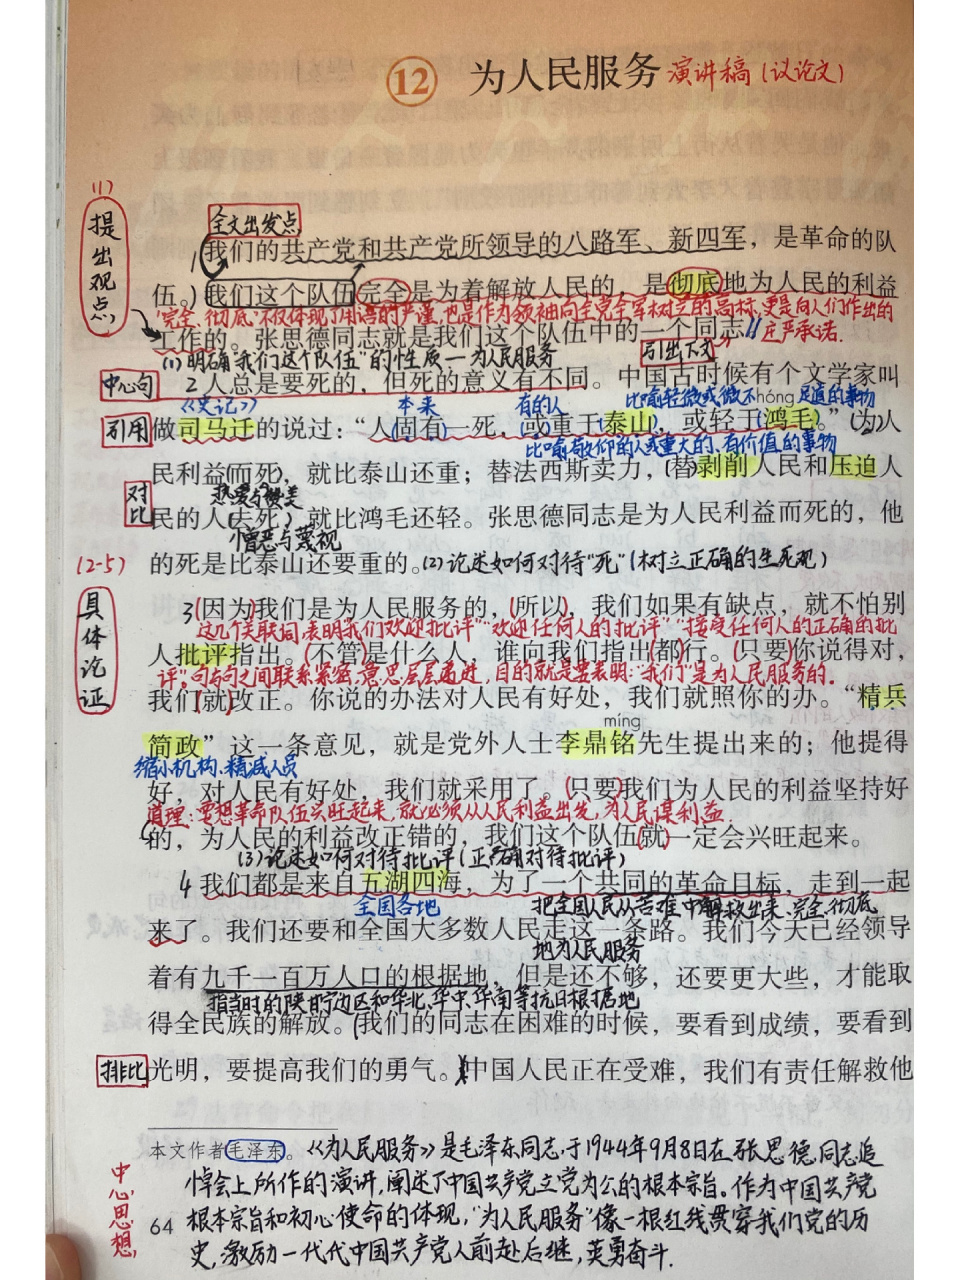 12 为人民服务 演讲稿(议论文)
(1)
提出观点
全文出发点
1 我们的共产党和共产党所领导的八路军、新四军，是革命的队
伍。我们这个队伍完全是为着解放人民的，是彻底地为人民的利益
"完全、彻底"不仅体现了用语的严谨,也是作为领袖向全党全军树立的高标,更是向人们作出的
工作的。张思德同志就是我们这个队伍中的一个同志。
庄严承诺.
(1)明确"我们这个队伍"的性质—为人民服务
引出下文
中心句
2 人总是要死的，但死的意义有不同。中国古时候有个文学家叫
《史记》 本来 有的人 比喻轻微或微不足道的事物
hóng
引用
做司马迁的说过：“人固有一死，或重于泰山，或轻于鸿毛。”(为)人
比喻敬仰的人或重大的、有价值的事物
民利益(而死)，就比泰山还重；替法西斯卖力，(替)剥削人民和压迫人
对比
热爱与赞美
民的人(去死)，就比鸿毛还轻。张思德同志是为人民利益而死的，他
憎恶与蔑视
(2-5)
的死是比泰山还要重的。(2)论述如何对待"死"(树立正确的生死观)
具体论证
3 (因为)我们是为人民服务的，(所以)，我们如果有缺点，就不怕别
这几个关联词,表明我们"欢迎批评""欢迎任何人的批评""接受任何人的正确的批
人批评指出。(不管)是什么人，谁向我们指出(都)行。(只要)你说得对，
评"。句与句之间联系紧密,意思层层递进，目的就是要表明:"我们"是为人民服务的.
我们(就)改正。你说的办法对人民有好处，我们就照你的办。“精兵
míng
简政”这一条意见，就是党外人士李鼎铭先生提出来的；他提得
缩小机构、精减人员
好，对人民有好处，我们就采用了。(只要)我们为人民的利益坚持好
道理:要想革命队伍兴旺起来,就必须从人民利益出发,为人民谋利益
的，为人民的利益改正错的，我们这个队伍(就)一定会兴旺起来。
(3)论述如何对待批评(正确对待批评)
4 我们都是来自五湖四海，为了一个共同的革命目标，走到一起
全国各地 把全国人民从苦难中解放出来、完全、彻底
来了。我们还要和全国大多数人民走这一条路。我们今天已经领导
地为人民服务
着有九千一百万人口的根据地，但是还不够，还要更大些，才能取
指当时的陕甘宁边区和华北、华中、华南等抗日根据地
得全民族的解放。(我们的同志在困难的时候，要看到成绩，要看到
排比
光明，要提高我们的勇气。)中国人民正在受难，我们有责任解救他
本文作者毛泽东。《为人民服务》是毛泽东同志,于1944年9月8日在张思德同志追
悼会上所作的演讲,阐述了中国共产党立党为公的根本宗旨。作为中国共产党
中心思想
64 根本宗旨和初心使命的体现,"为人民服务"像一根红线贯穿我们党的历
史,激励一代代中国共产党人前赴后继,英勇奋斗.